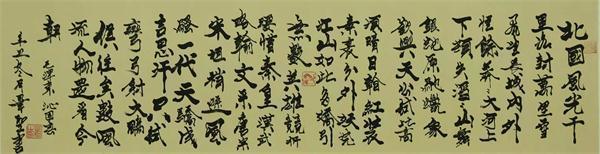 北國風光千
里冰封萬里雪
飄望長城內外
惟餘莽莽大河上
下頓失滔滔山舞
銀蛇原馳蠟象
欲與天公試比高
須晴日看紅裝
素裹分外妖嬈
江山如此多嬌引
無數英雄競折
腰惜秦皇漢武
略輸文采唐宗
宋祖稍遜風
騷一代天驕成
吉思汗只識
彎弓射大雕
俱往矣數風
流人物還看今
朝
毛澤東 沁園春
辛丑冬月 書